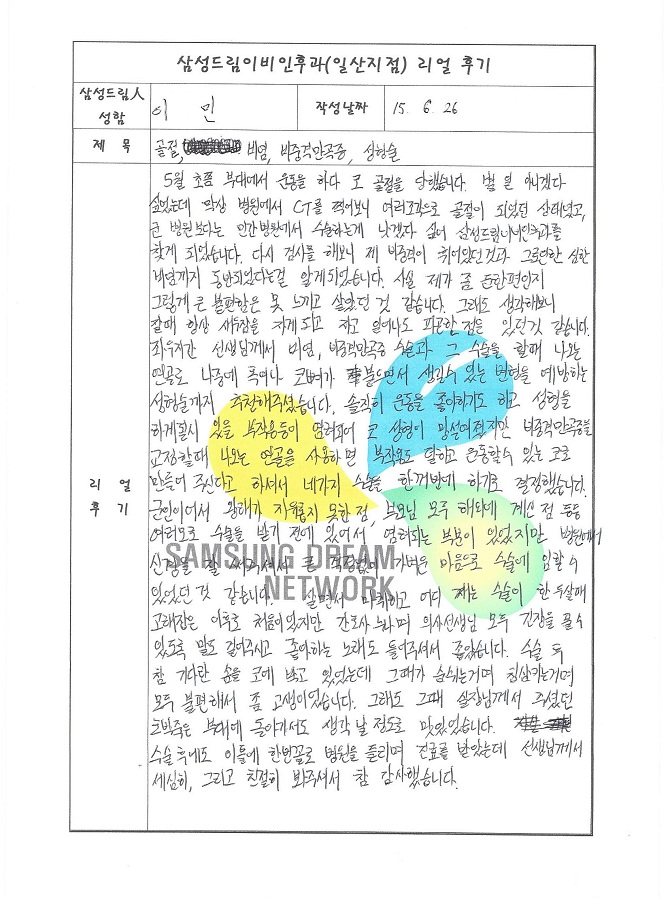 삼성드림이비인후과(일산지점) 리얼 후기
삼성드림人 성함
이 민
작성날짜
15. 6. 26
제 목
골절, 비염, 비중격만곡증, 성형술
리 얼 후 기
5월 초쯤 부대에서 운동을 하다 코 골절을 당했습니다. 별 일 아니겠다
싶었는데 막상 병원에서 CT를 찍어보니 여러조각으로 골절이 되었던 상태였고,
군 병원보다는 민간병원에서 수술하는게 낫겠다 싶어 삼성드림이비인후과를
찾게 되었습니다. 다시 검사를 해보니 제 비중격이 휘어있었던것과 그로인한 심한
비염까지 동반되었다는걸 알게되었습니다. 사실 제가 좀 둔한편인지
그렇게 큰 불편함은 못 느끼고 살았던 것 같습니다. 그래도 생각해보니
잘때 항상 새우잠을 자게 되고 자고 일어나도 피곤한 점은 있던것 같습니다.
좌우지간 선생님께서 비염, 비중격만곡증 수술과 그 수술을 할때 나오는
연골로 나중에 혹여나 코뼈가 붙으면서 생길수 있는 변형을 예방하는
성형술까지 추천해주셨습니다. 솔직히 운동을 좋아하기도 하고 성형을
하게될시 있을 부작용등이 염려되어 코 성형이 망설여졌지만 비중격만곡증을
교정할때 나오는 연골을 사용하면 부작용도 덜하고 운동할수 있는 코로
만들어 주신다고 하셔서 네가지 수술을 한꺼번에 하기로 결정했습니다.
군인이어서 왕래가 자유롭지 못한 점, 부모님 모두 해외에 계신 점 등등
여러모로 수술을 받기 전에 있어서 염려되는 부분이 있었지만 병원에서
신경을 잘 써주셔서 큰 걱정없이 가벼운 마음으로 수술에 임할 수
있었던 것 같습니다. 살면서 마취하고 하는 수술이 한 두살때
고래잡은 이후로 처음이었지만 간호사 누나며 의사선생님 모두 긴장을 풀 수
있도록 말도 걸어주시고 좋아하는 노래도 틀어주셔서 좋았습니다. 수술 후
참 기다란 솜을 코에 박고 있었는데 그때가 숨쉬는거며 침삼키는거며
모두 불편해서 좀 고생이었습니다. 그래도 그때 실장님께서 주셨던
호박죽은 부대에 돌아가서도 생각 날 정도로 맛있었습니다.
수술 후에도 이틀에 한번꼴로 병원을 들리며 진료를 받았는데 선생님께서
세심히, 그리고 친절히 봐주셔서 참 감사했습니다.
SAMSUNG DREAM
NETWORK